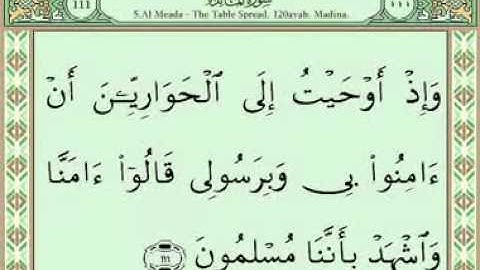 111 سورة المائدة ١١١
5.Al Meada - The Table Spread, 120ayah. Madina.
وَإِذْ أَوْحَيْتُ إِلَى ٱلْحَوَارِيِّـۧنَ أَنْ
ءَامِنُوا۟ بِى وَبِرَسُولِى قَالُوٓا۟ ءَامَنَّا
وَٱشْهَدْ بِأَنَّنَا مُسْلِمُونَ ١١١